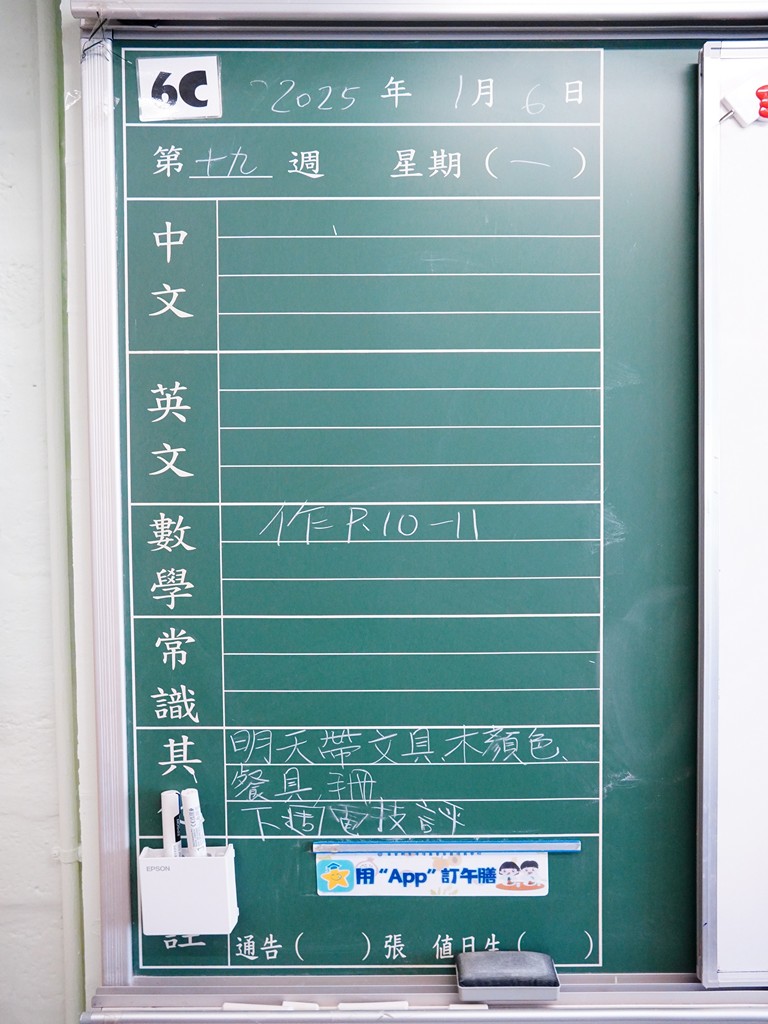 6C 2025年1月6日
第十九週 星期(一)
中文
英文
數學 作 P.10-11
常識
其 明天帶文具、木顏色、
餐具、手冊
下週 技評
EPSON
用“App”訂午膳
註 通告( )張 值日生( )